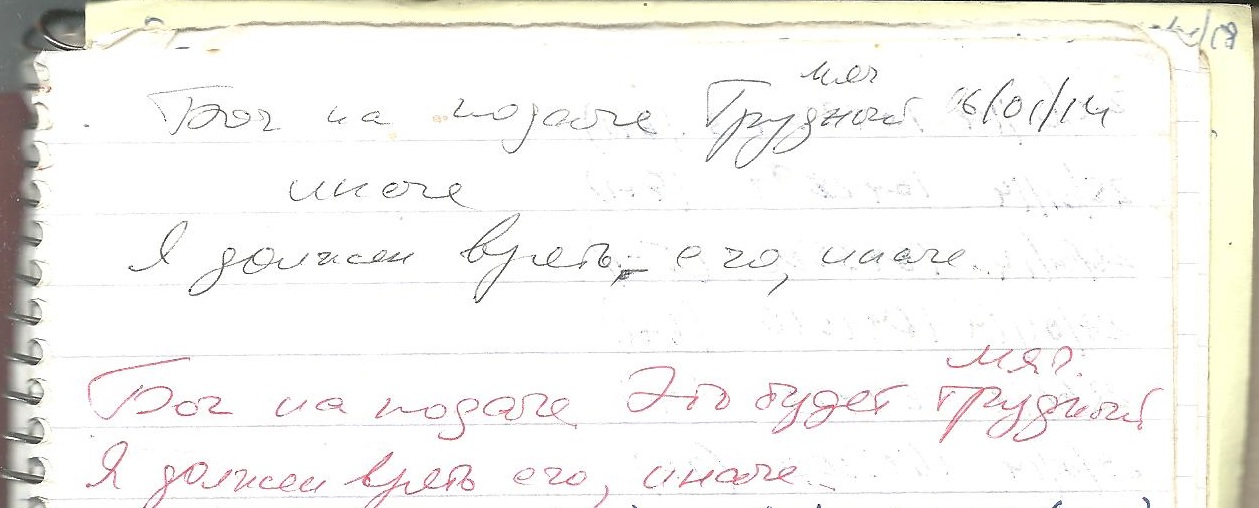 мяч
Бог на подаче Трудный 16/01/14
иначе
Я должен взять его, иначе...
мяч.
Бог на подаче Это будет трудный
Я должен взять его, иначе...